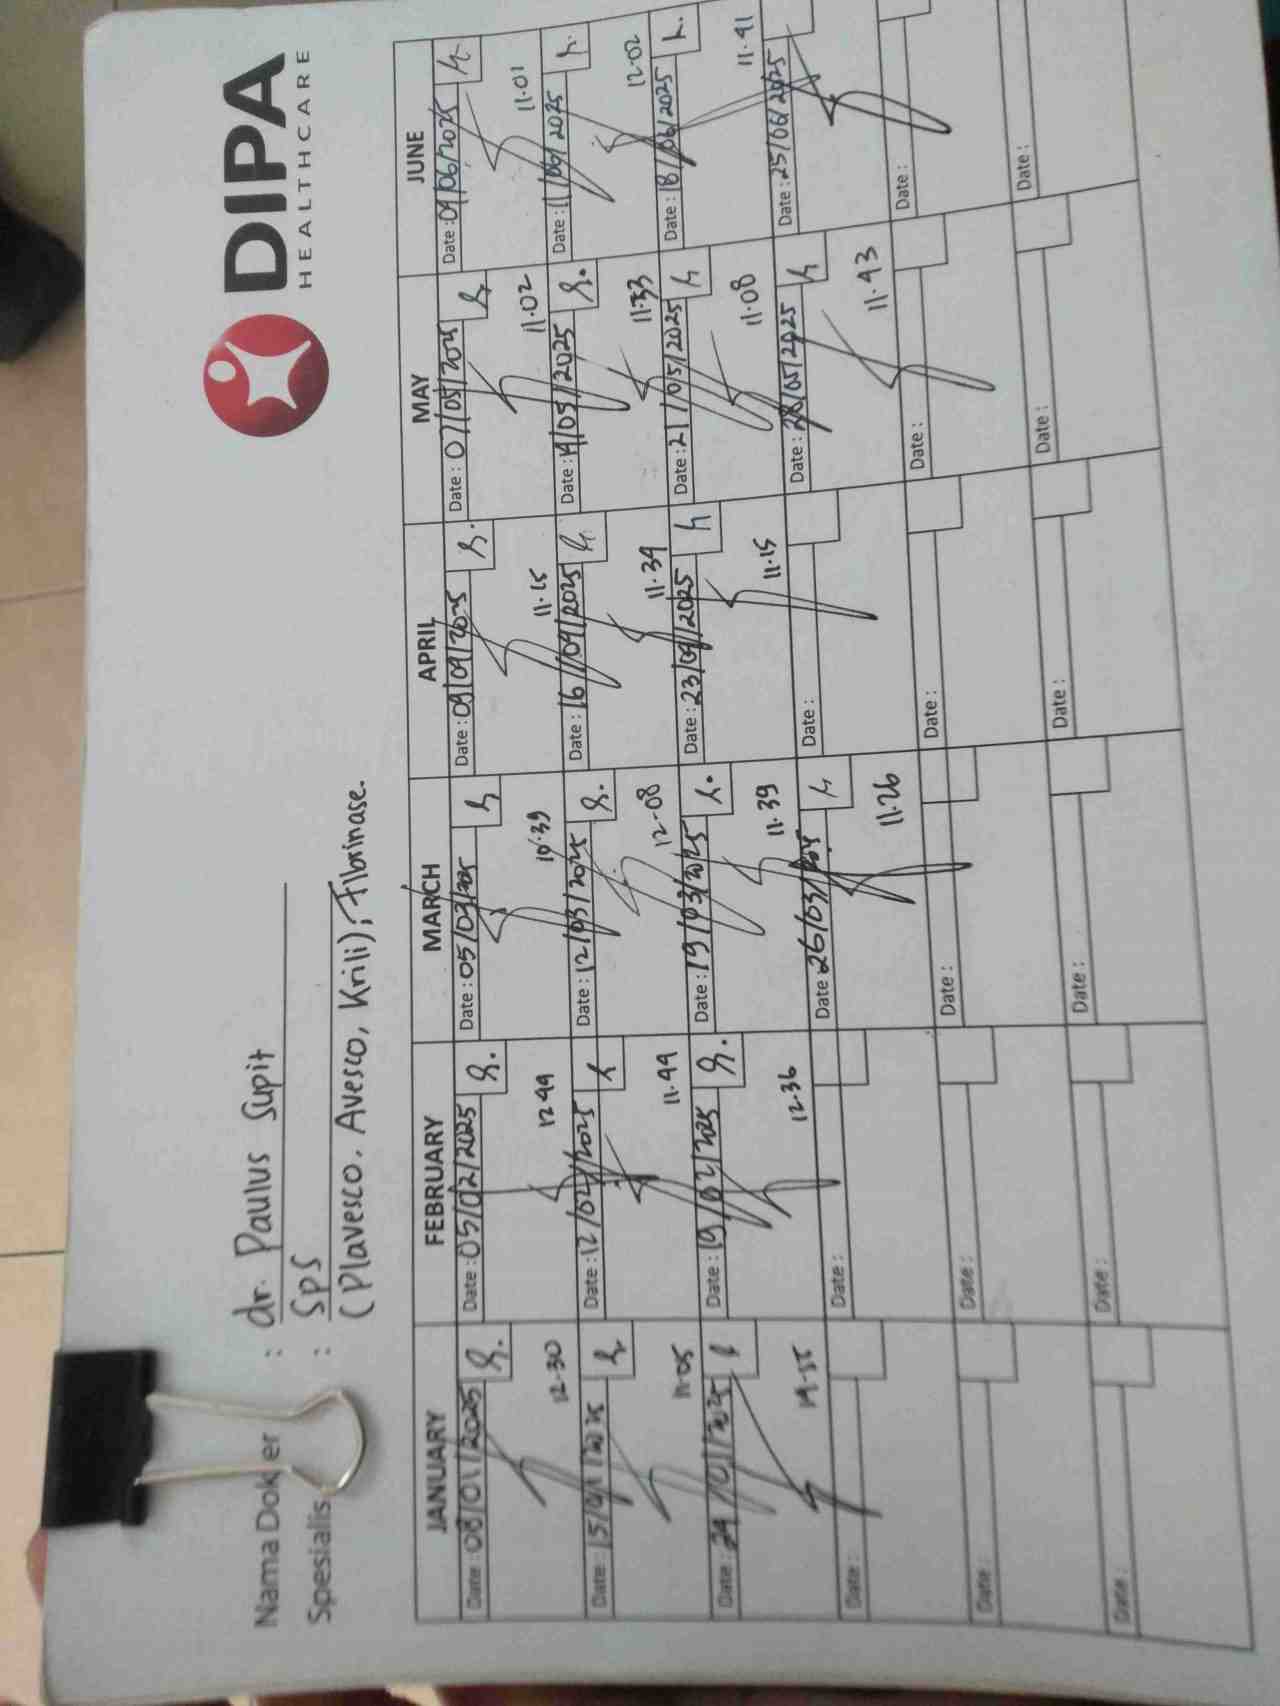 DIPA
HEALTHCARE
Nama Dokter : dr. Paulus Supit
Spesialis : SpS
(Plavesco. Avesco, Krili), Fibrinase.
JANUARY FEBRUARY MARCH APRIL MAY JUNE
Date : 08/01/2025 Date : 05/02/2025 Date : 05/03/2025 Date : 09/04/2025 Date : 07/05/2025 Date : 04/06/2025
12.30 12.44 10.39 11.15 11.02 11.01
Date : 15/01/2025 Date : 12/02/2025 Date : 12/03/2025 Date : 16/04/2025 Date : 14/05/2025 Date : 11/06/2025
11.05 11.44 12.08 11.34 11.33 12.02
Date : 24/01/2025 Date : 19/02/2025 Date : 19/03/2025 Date : 23/04/2025 Date : 21/05/2025 Date : 18/06/2025
12.36 11.39 11.15 11.08 11.41
Date : Date : Date 26/03/2025 Date : Date : 28/05/2025 Date : 25/06/2025
11.26 11.43
Date : Date : Date : Date : Date : Date :
Date : Date : Date : Date : Date : Date :